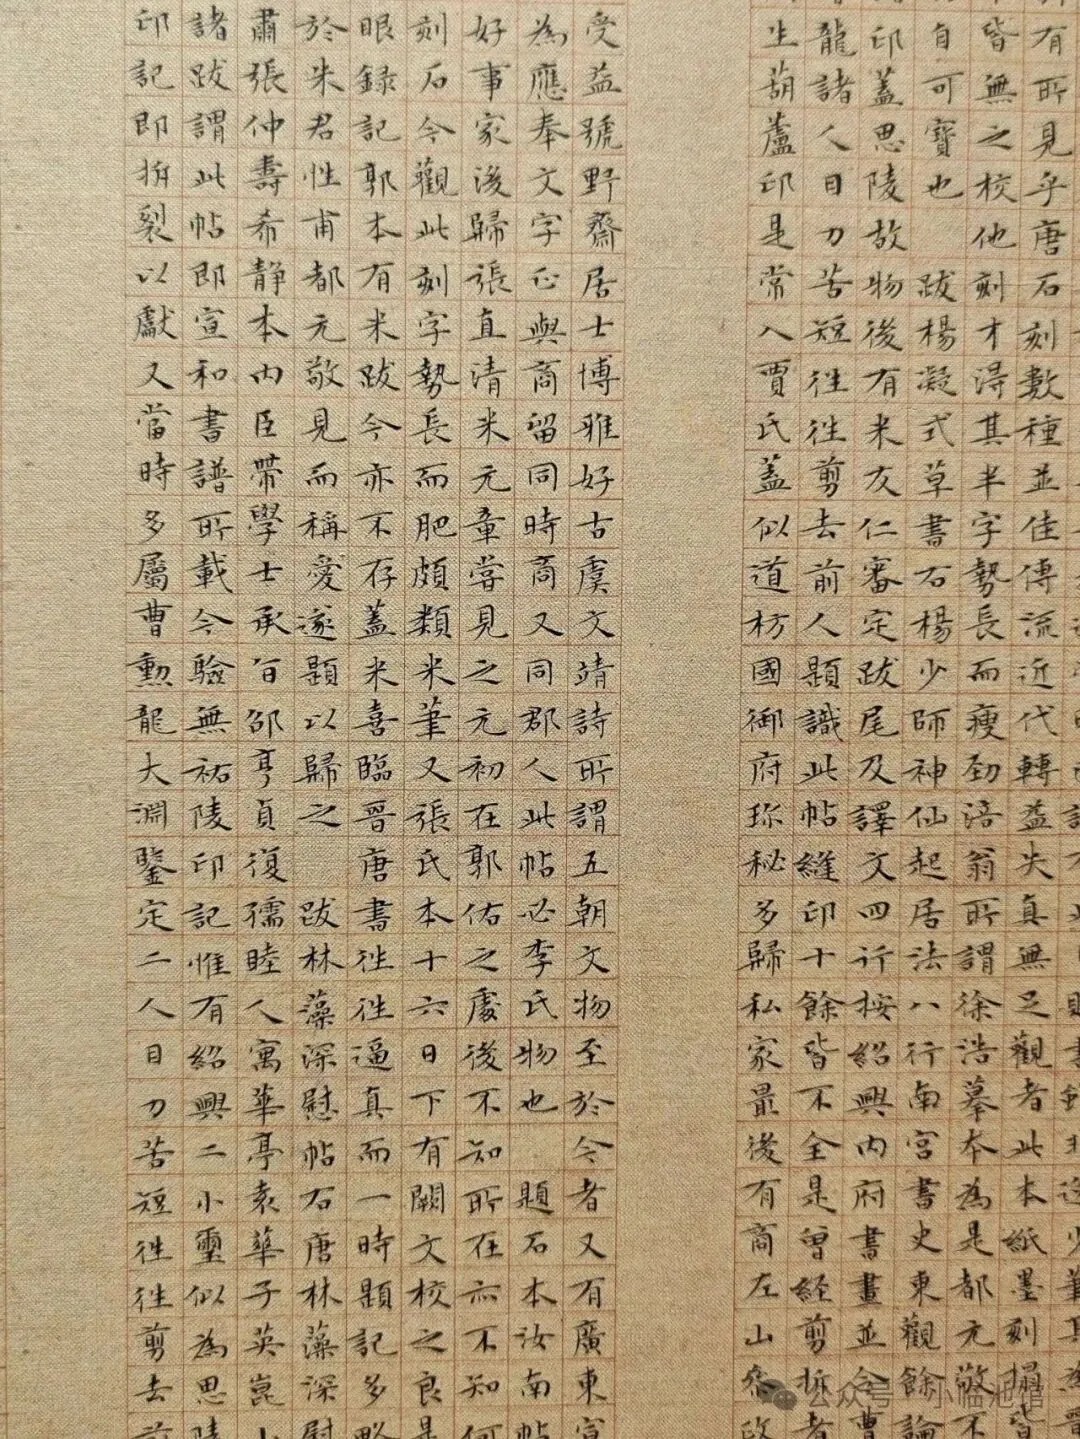 有所見乎唐石刻數種並佳傳流近代轉益失真無足觀者此本紙墨刻搨皆
皆無之校他刻才得其半字勢長而瘦勁涪翁所謂徐浩摹本為是都元敬不
自可寶也 跋楊凝式草書石楊少師神仙起居法八行南宮書史東觀餘論
印蓋思陵故物後有米友仁審定跋尾及譯文四行按紹興內府書畫並令曹
龍諸人目力苦短往往剪去前人題識此帖縫印十餘皆不全是曾經剪拆者
生葫蘆印是常入賈氏蓋似道枋國御府珍秘多歸私家最後有商左山參政
受益號野齋居士博雅好古虞文靖詩所謂五朝文物至於今者又有廣東宣
為應奉文字正與商留同時商又同郡人此帖必李氏物也 題石本汝南帖
好事家後歸張直清米元章嘗見之元初在郭佑之處後不知所在亦不知何
刻石今觀此刻字勢長而肥頗類米筆又張氏本十六日下有闕文校之良是
眼録記郭本有米跋今亦不存蓋米喜臨晉唐書往往逼真而一時題記多略
於朱君性甫都元敬見而稱愛遂題以歸之 跋林藻深慰帖石唐林藻深慰
肅張仲壽希靜本內臣帶學士承旨邵亨貞復孺睦人寓華亭袁華子英崑山
諸跋謂此帖即宣和書譜所載今驗無祐陵印記惟有紹興二小璽似為思陵
印記即拆裂以獻又當時多屬曹勳龍大淵鑒定二人目力苦短往往剪去前
公众号·小临池馆